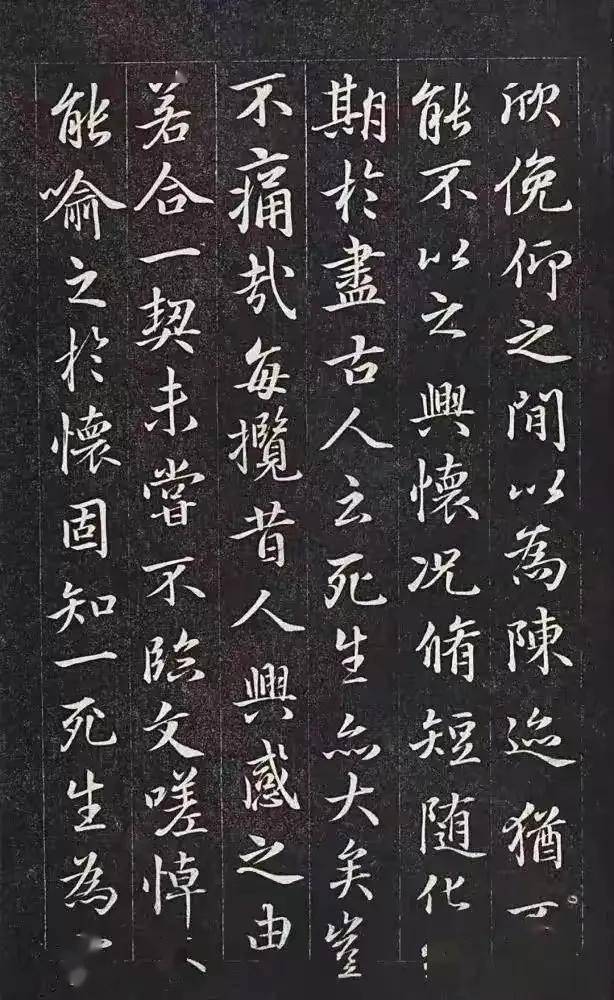 欣俛仰之間以為陳迹猶
能不以之興懷况脩短随化
期於盡古人云死生亦大矣豈
不痛哉每攬昔人興感之由
若合一契未嘗不臨文嗟悼
能喻之於懷固知一死生為